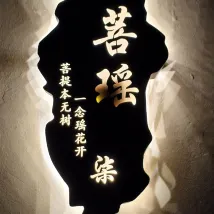 菩瑶
柒
一念瑶花开
菩提本无树